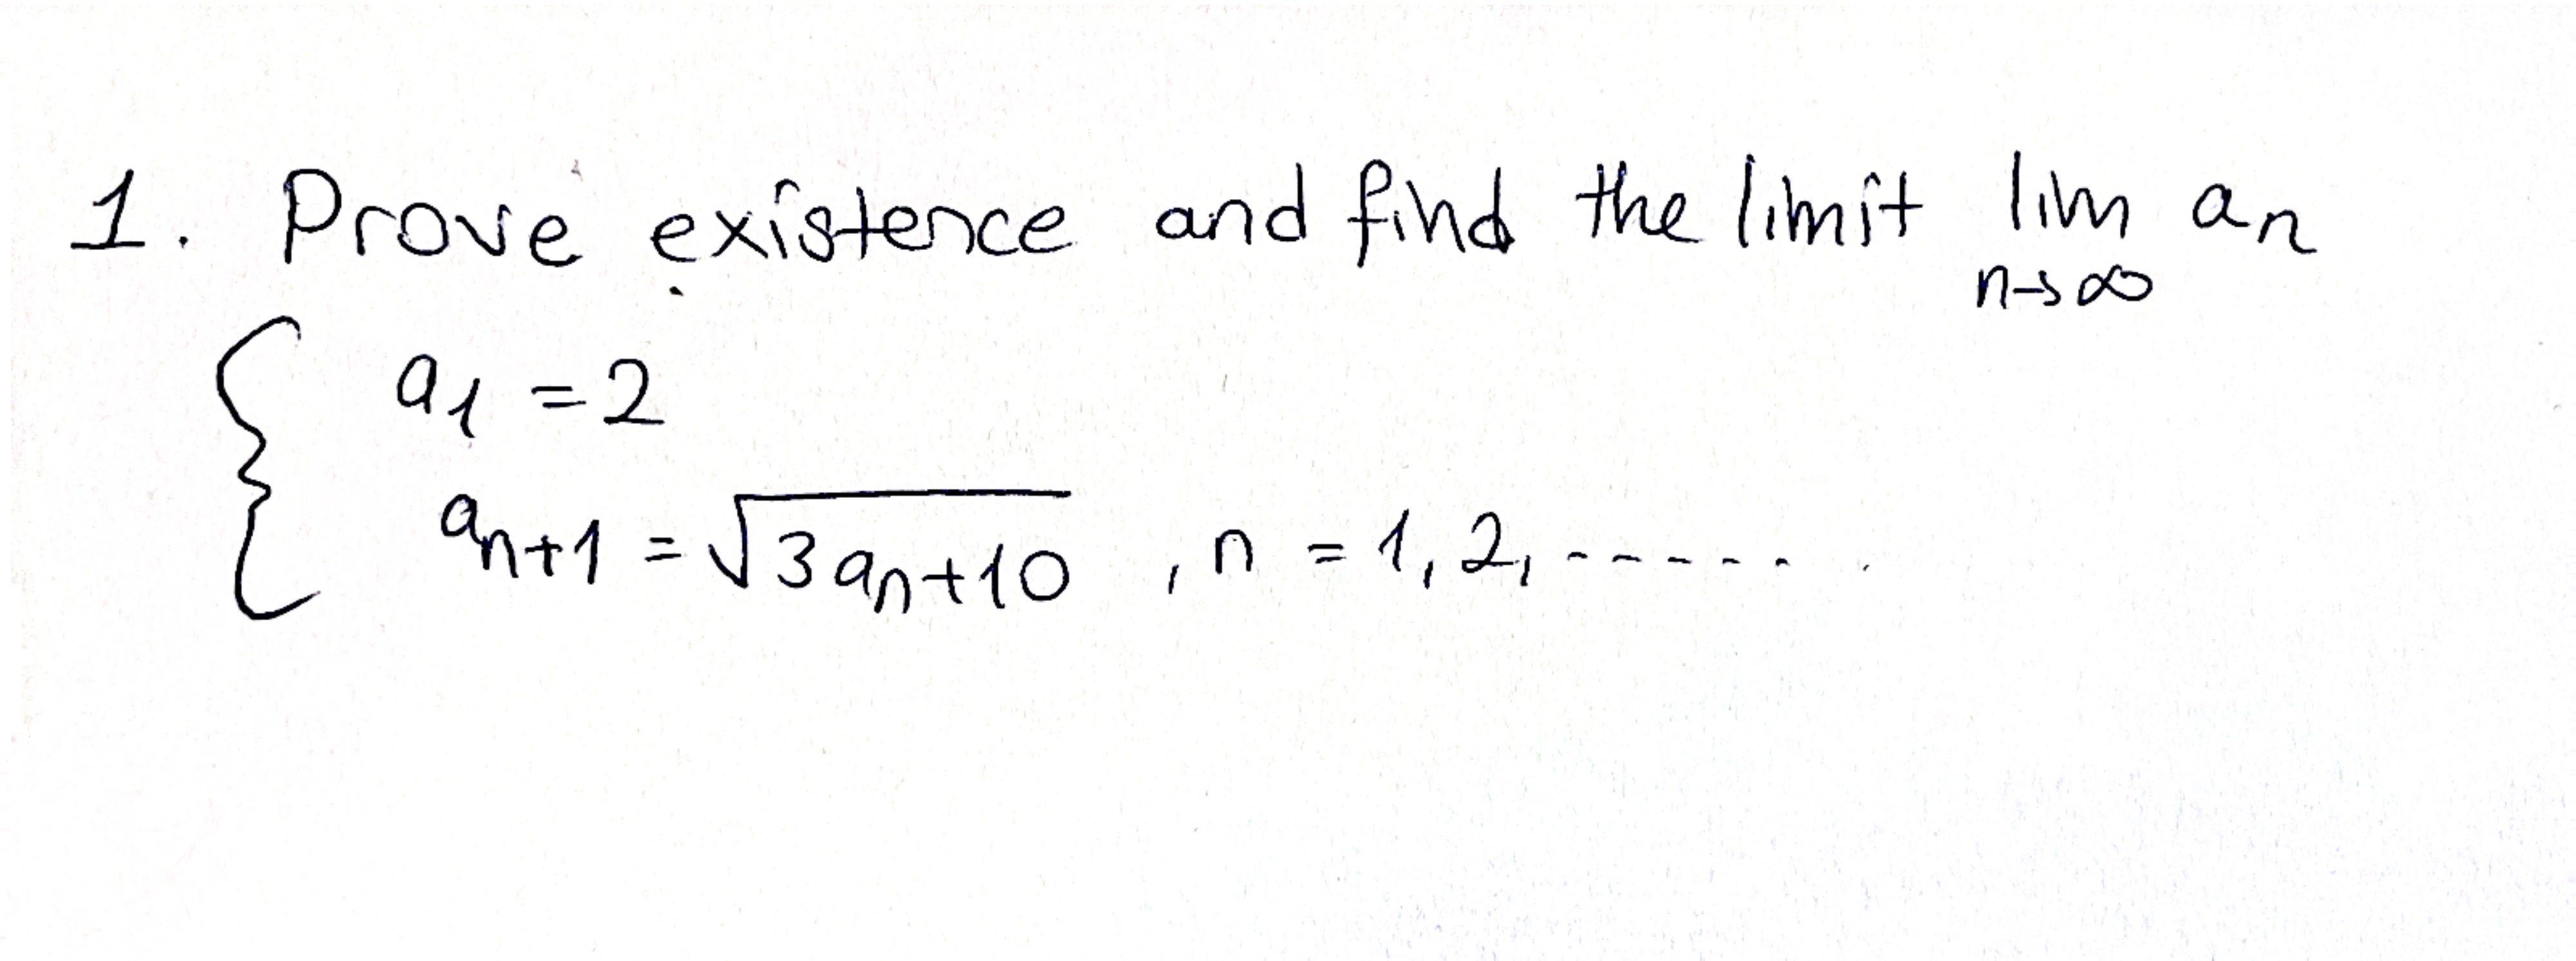 1. Prove existence and find the limit lim aₙ
n→∞
a₁ = 2
aₙ₊₁ = √(3aₙ+10) , n = 1, 2, - - - - - - .